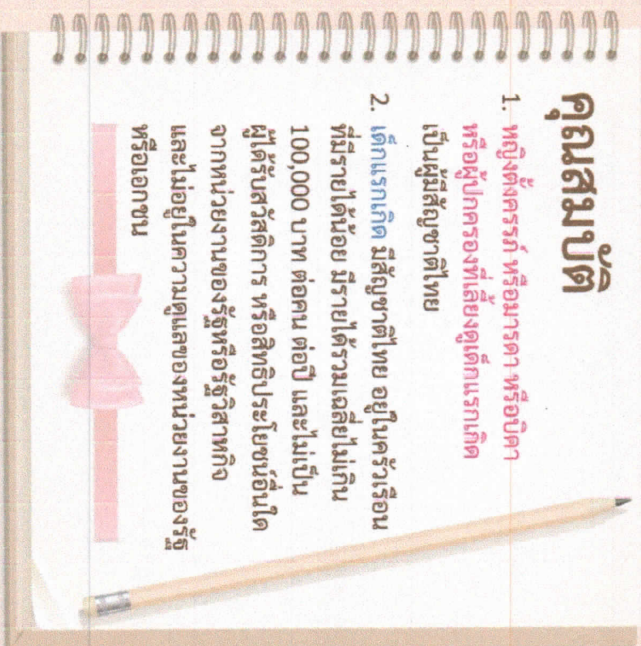 คุณสมบัติ
1. หญิงตั้งครรภ์ หรือมารดา หรือบิดา
หรือผู้ปกครองที่เลี้ยงดูเด็กแรกเกิด
เป็นผู้มีสัญชาติไทย
2. เด็กแรกเกิด มีสัญชาติไทย อยู่ในครัวเรือน
ที่มีรายได้น้อย มีรายได้รวมเฉลี่ยไม่เกิน
100,000 บาท ต่อคน ต่อปี และไม่เป็น
ผู้ได้รับสวัสดิการ หรือสิทธิประโยชน์อื่นใด
จากหน่วยงานของรัฐหรือรัฐวิสาหกิจ
และไม่อยู่ในความดูแลของหน่วยงานของรัฐ
หรือเอกชน